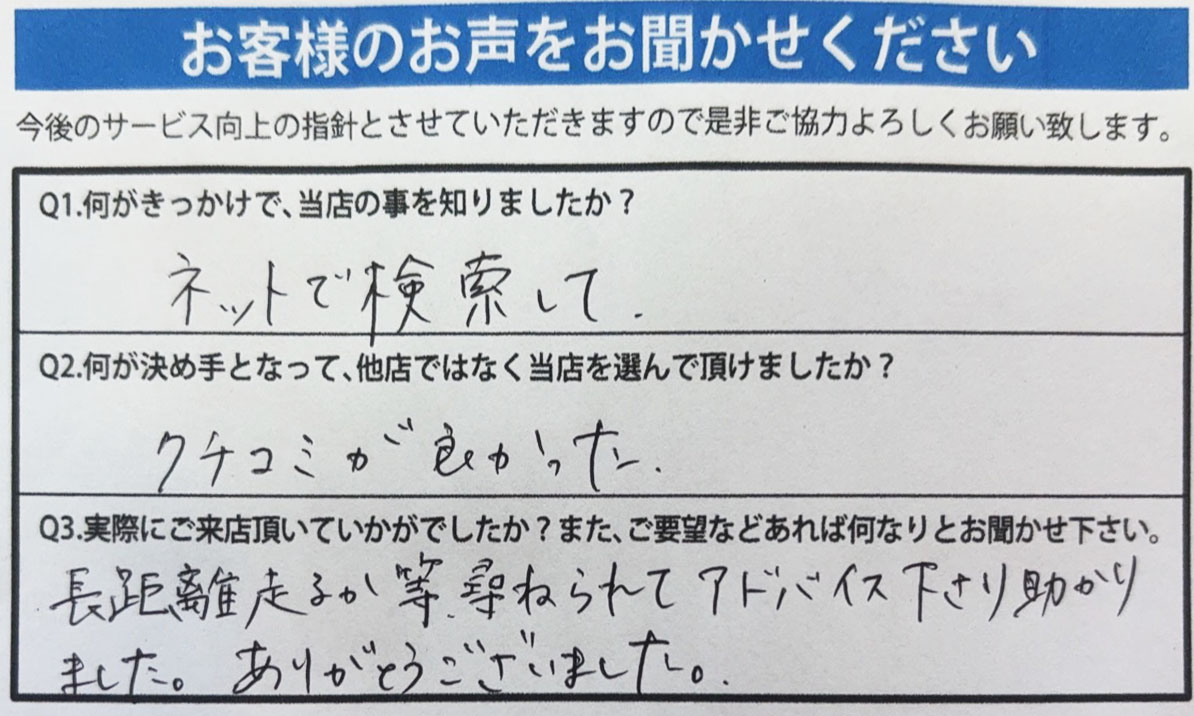 お客様のお声をお聞かせください
今後のサービス向上の指針とさせていただきますので是非ご協力よろしくお願い致します。
Q1.何がきっかけで、当店の事を知りましたか？
ネットで検索して.
Q2.何が決め手となって、他店ではなく当店を選んで頂けましたか？
クチコミが良かった.
Q3.実際にご来店頂いていかがでしたか？また、ご要望などあれば何なりとお聞かせ下さい。
長距離走るか等、尋ねられてアドバイス下さり助かり
ました。ありがとうございました。